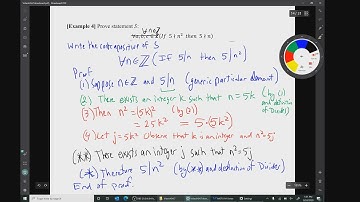 [Example 4] Prove statement S:
∀n∈ℤ (If 5∤n² then 5∤n)
Write the contrapositive of S
∀n∈ℤ (If 5|n then 5|n²)
Proof
(1) Suppose n∈ℤ and 5|n (generic particular element)
(2) There exists an integer k such that n=5k (by (1) and definition of Divides)
(3) Then n² = (5k)² (by (2))
= 25k² = 5·(5k²)
(4) Let j=5k² Observe that k is an integer and n²=5j
(**) There exists an integer j such that n²=5j
(*) Therefore 5|n² (by (**) and definition of Divides)
End of proof.